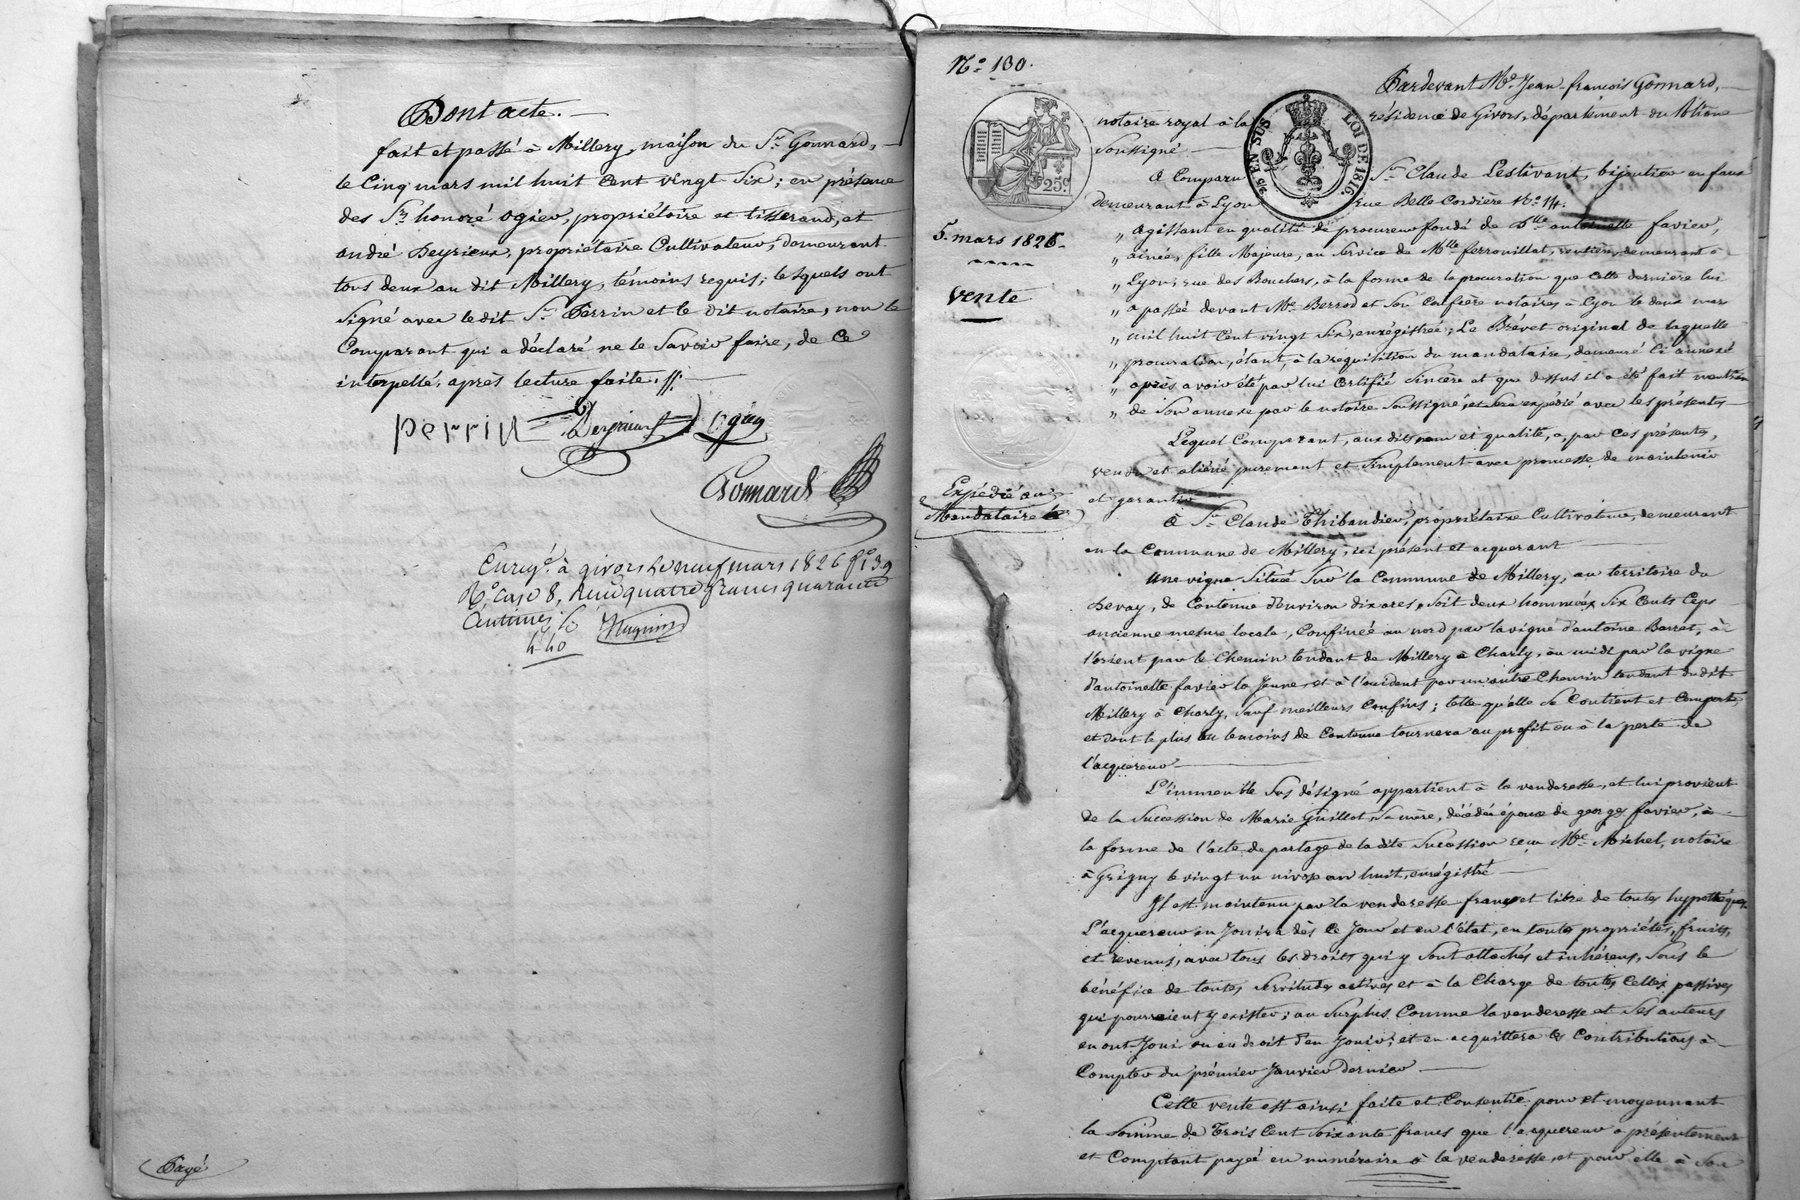 Dont acte. —
fait et passé à Millery, maison du Sr. Gonnard, —
le Cinq mars mil huit Cent vingt Six; en présence
des Srs. honoré Ogier, propriétaire et tisserand, et
andré Deyrieux, propriétaire Cultivateur, demeurant
tous deux au dit Millery, témoins requis; lesquels ont
Signé avec le dit Sr. Perrin et le dit notaire, non le
Comparant qui a déclaré ne le Savoir faire, de Ce
interpellé, après lecture faite. //. —
perrin Deyrieux Ogier
Gonnard
Enregé. à givors le neuf mars 1826 fo. 39
Ro. Case 8, Reçu quatre francs quarante
Centimes
4.40
Payé
No. 130.
Pardevant Me. Jean-françois Gonnard, —
notaire royal à la résidence de Givors, département du Rhône
Soussigné —
25c
EN SUS LOI DE 1816.
A Comparu Sr. Claude Lestivant, bijoutier en faux
demeurant à Lyon rue Belle Cordière No. 14.
5. mars 1826.
„ agissant en qualité de procureur fondé de Dlle. antoinette favier,
„ ainée, fille Majeure, au Service de Mlle ferrouillat, rentière, demeurant à
„ Lyon, rue des Bouchers, à la forme de la procuration que Cette dernière lui
vente
„ a passée devant Me. Berrod et Son Confrère notaires à Lyon le deux mars
„ mil huit Cent vingt Six, enrégistrée; Le Brévet original de laquelle
„ procuration, étant, à la requisition du mandataire, demeuré Ci annexé
„ après avoir été par lui Certifié Sincère et que dessus il a été fait mention
„ de Son annexe par le notaire Soussigné, et Sera expédié avec les présentes —
Lequel Comparant, aux dits nom et qualité, a, par Ces présentes,
vendu et aliéné purement et Simplement avec promesse de maintenir
et garantir
Expédié au
Mandataire
à Sr. Claude Thibaudier, propriétaire Cultivateur, demeurant
en la Commune de Millery, ici présent et acquerant —
Une vigne Située Sur la Commune de Millery, au territoire du
Devay, de Contenue d'environ dix ares, Soit deux hommées Six Cents Ceps
ancienne mesure locale, Confinée au nord par la vigne d'antoine Barret, à
l'orient par le Chemin tendant de Millery à Charly, au midi par la vigne
d'antoinette favier la Jeune, et à l'occident par un autre Chemin tendant du dit
Millery à Charly, Sauf meilleurs Confins; telle qu'elle Se Contient et Comporte,
et dont le plus ou le moins de Contenue tournera au profit ou à la perte de
l'acquereur —
L'immeuble Sus désigné appartient à la venderesse, et lui provient
de la Succession de Marie Guillot, Sa mère, décédée épouse de george favier, à —
la forme de l'acte de partage de la dite Succession reçu Me. Michel, notaire
à Grigny le vingt un nivose an huit, enrégistré —
Il est maintenu par la venderesse franc et libre de toutes hypothèques.
L'acquereur en Jouira dès Ce Jour et en l'état, en toute propriétés, fruits,
et revenus, avec tous les droits qui y Sont attachés et inhérens, Sous le
bénéfice de toutes Servitudes actives et à la Charge de toutes Celles passives
qui pourroient y exister; au Surplus Comme la venderesse et Ses auteurs
en ont Joui ou eu droit d'en Jouir, et en acquittera les Contributions à —
Compter du prémier Janvier dernier —
Cette vente est ainsi faite et Consentie pour et moyennant
la Somme de Trois Cent Soixante francs que l'acquereur a présentement
et Comptant payée en numéraire à la venderesse, et pour elle à Son